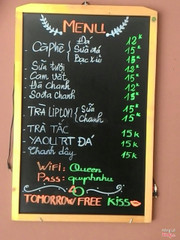 MENU
Đá 12k
Cà phê Sữa đá 15k
Bạc xỉu 15k
Sữa tươi 12k
Cam vắt 15k
Đá Chanh 12k
Soda chanh 15k
TRÀ LIPTON Sữa 15k
Chanh 15k
TRÀ TẮC 15k
YAOURT ĐÁ 15k
Chanh dây 15k
WiFi: Queen
Pass: quynhnhu
TOMORROW FREE KISS